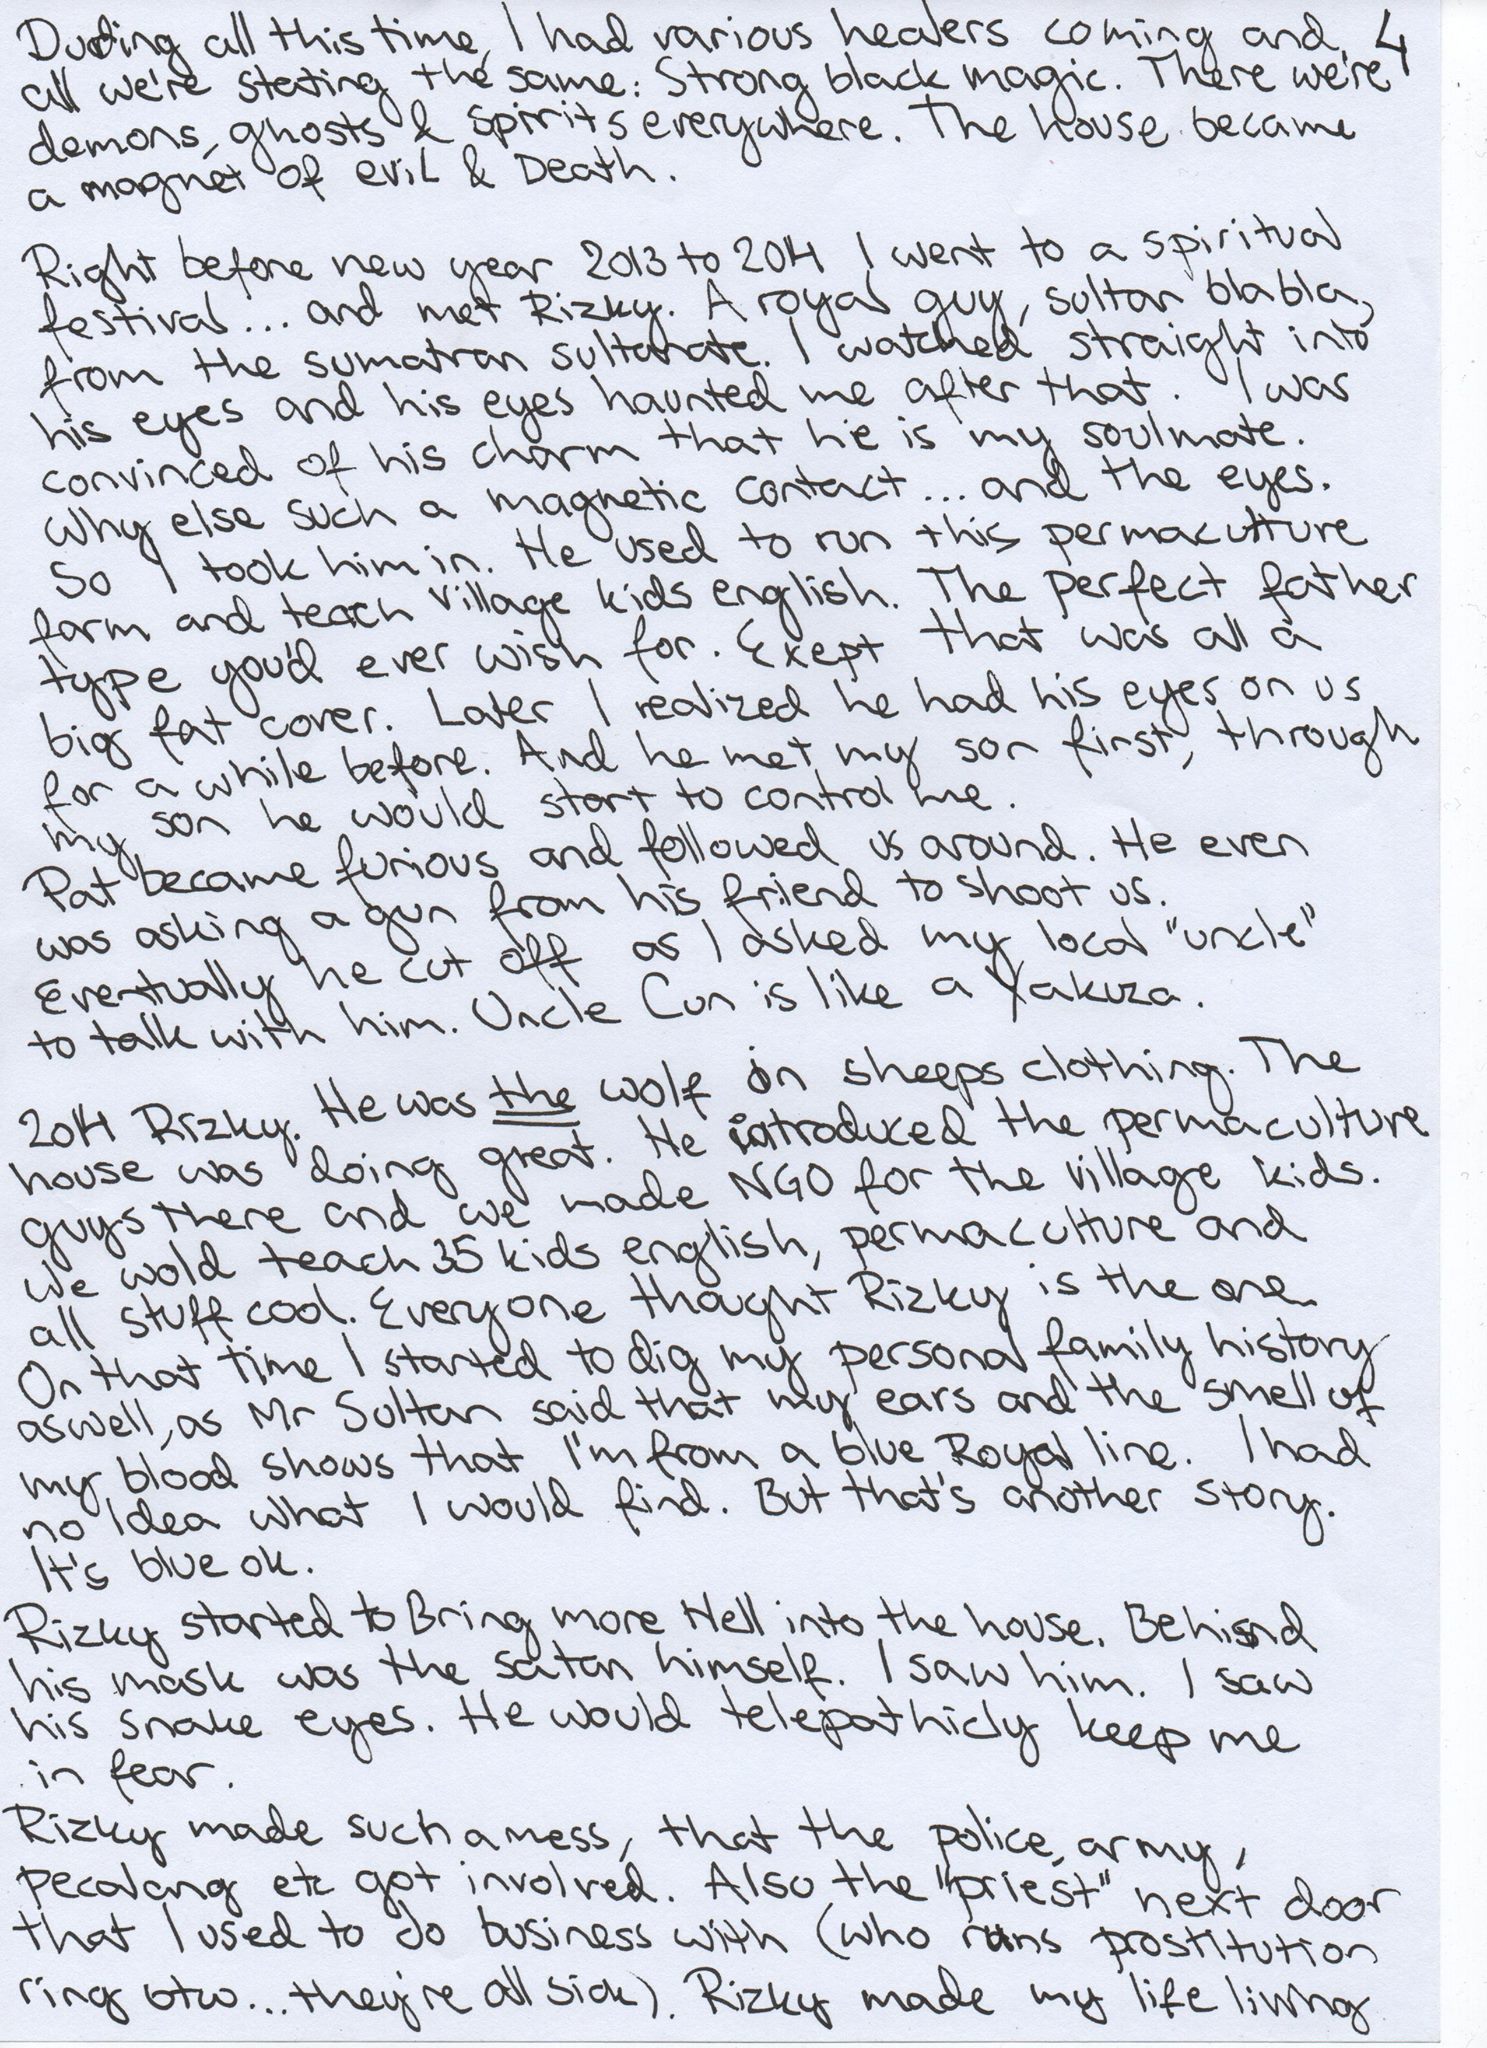 During all this time, I had various healers coming and, 4
all we're stating the same: Strong black magic. There we're
demons, ghosts & spirits everywhere. The house became
a magnet of evil & Death.
Right before new year 2013 to 2014 I went to a spiritual
festival... and met Rizky. A royal guy, sultan blabla,
from the sumatran sultanate. I watched straight into
his eyes and his eyes haunted me after that. I was
convinced of his charm that he is my soulmate.
Why else such a magnetic contact... and the eyes.
So I took him in. He used to run this permaculture
farm and teach village kids english. The perfect father
type you'd ever wish for. Exept that was all a
big fat cover. Later I realized he had his eyes on us
for a while before. And he met my son first, through
my son he would start to control me.
Pat became furious and followed us around. He even
was asking a gun from his friend to shoot us.
Eventually he cut off as I asked my local "uncle"
to talk with him. Uncle Cun is like a Yakuza.
2014 Rizky. He was the wolf in sheeps clothing. The
house was doing great. He introduced the permaculture
guys there and we made NGO for the village kids.
We wold teach 35 kids english, permaculture and
all stuff cool. Everyone thought Rizky is the one.
On that time I started to dig my personal family history
aswell, as Mr Sultan said that my ears and the smell of
my blood shows that I'm from a blue Royal line. I had
no Idea what I would find. But that's another story.
It's blue ok.
Rizky started to Bring more Hell into the house. Behind
his mask was the satan himself. I saw him. I saw
his snake eyes. He would telepathicly keep me
in fear.
Rizky made such a mess, that the police, army,
pecalang etc got involved. Also the "priest" next door
that I used to do business with (who runs prostitution
ring btw... they're all sick). Rizky made my life living